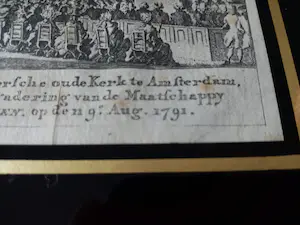 ersche oude Kerk te Amsterdam,
adering van de Maatschappy
op den 9e. Aug. 1791.